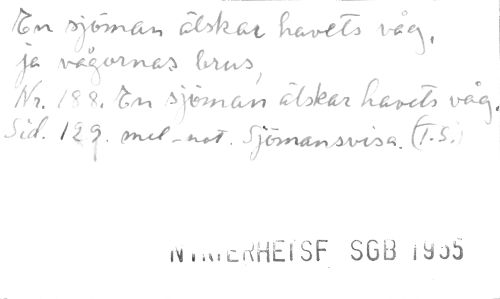 En sjöman älskar havets våg,
ja vågornas brus,
Nr. 188. En sjöman älskar havets våg.
Sid. 129. mel-not. Sjömansvisa. (T.S.)
SGB 1955